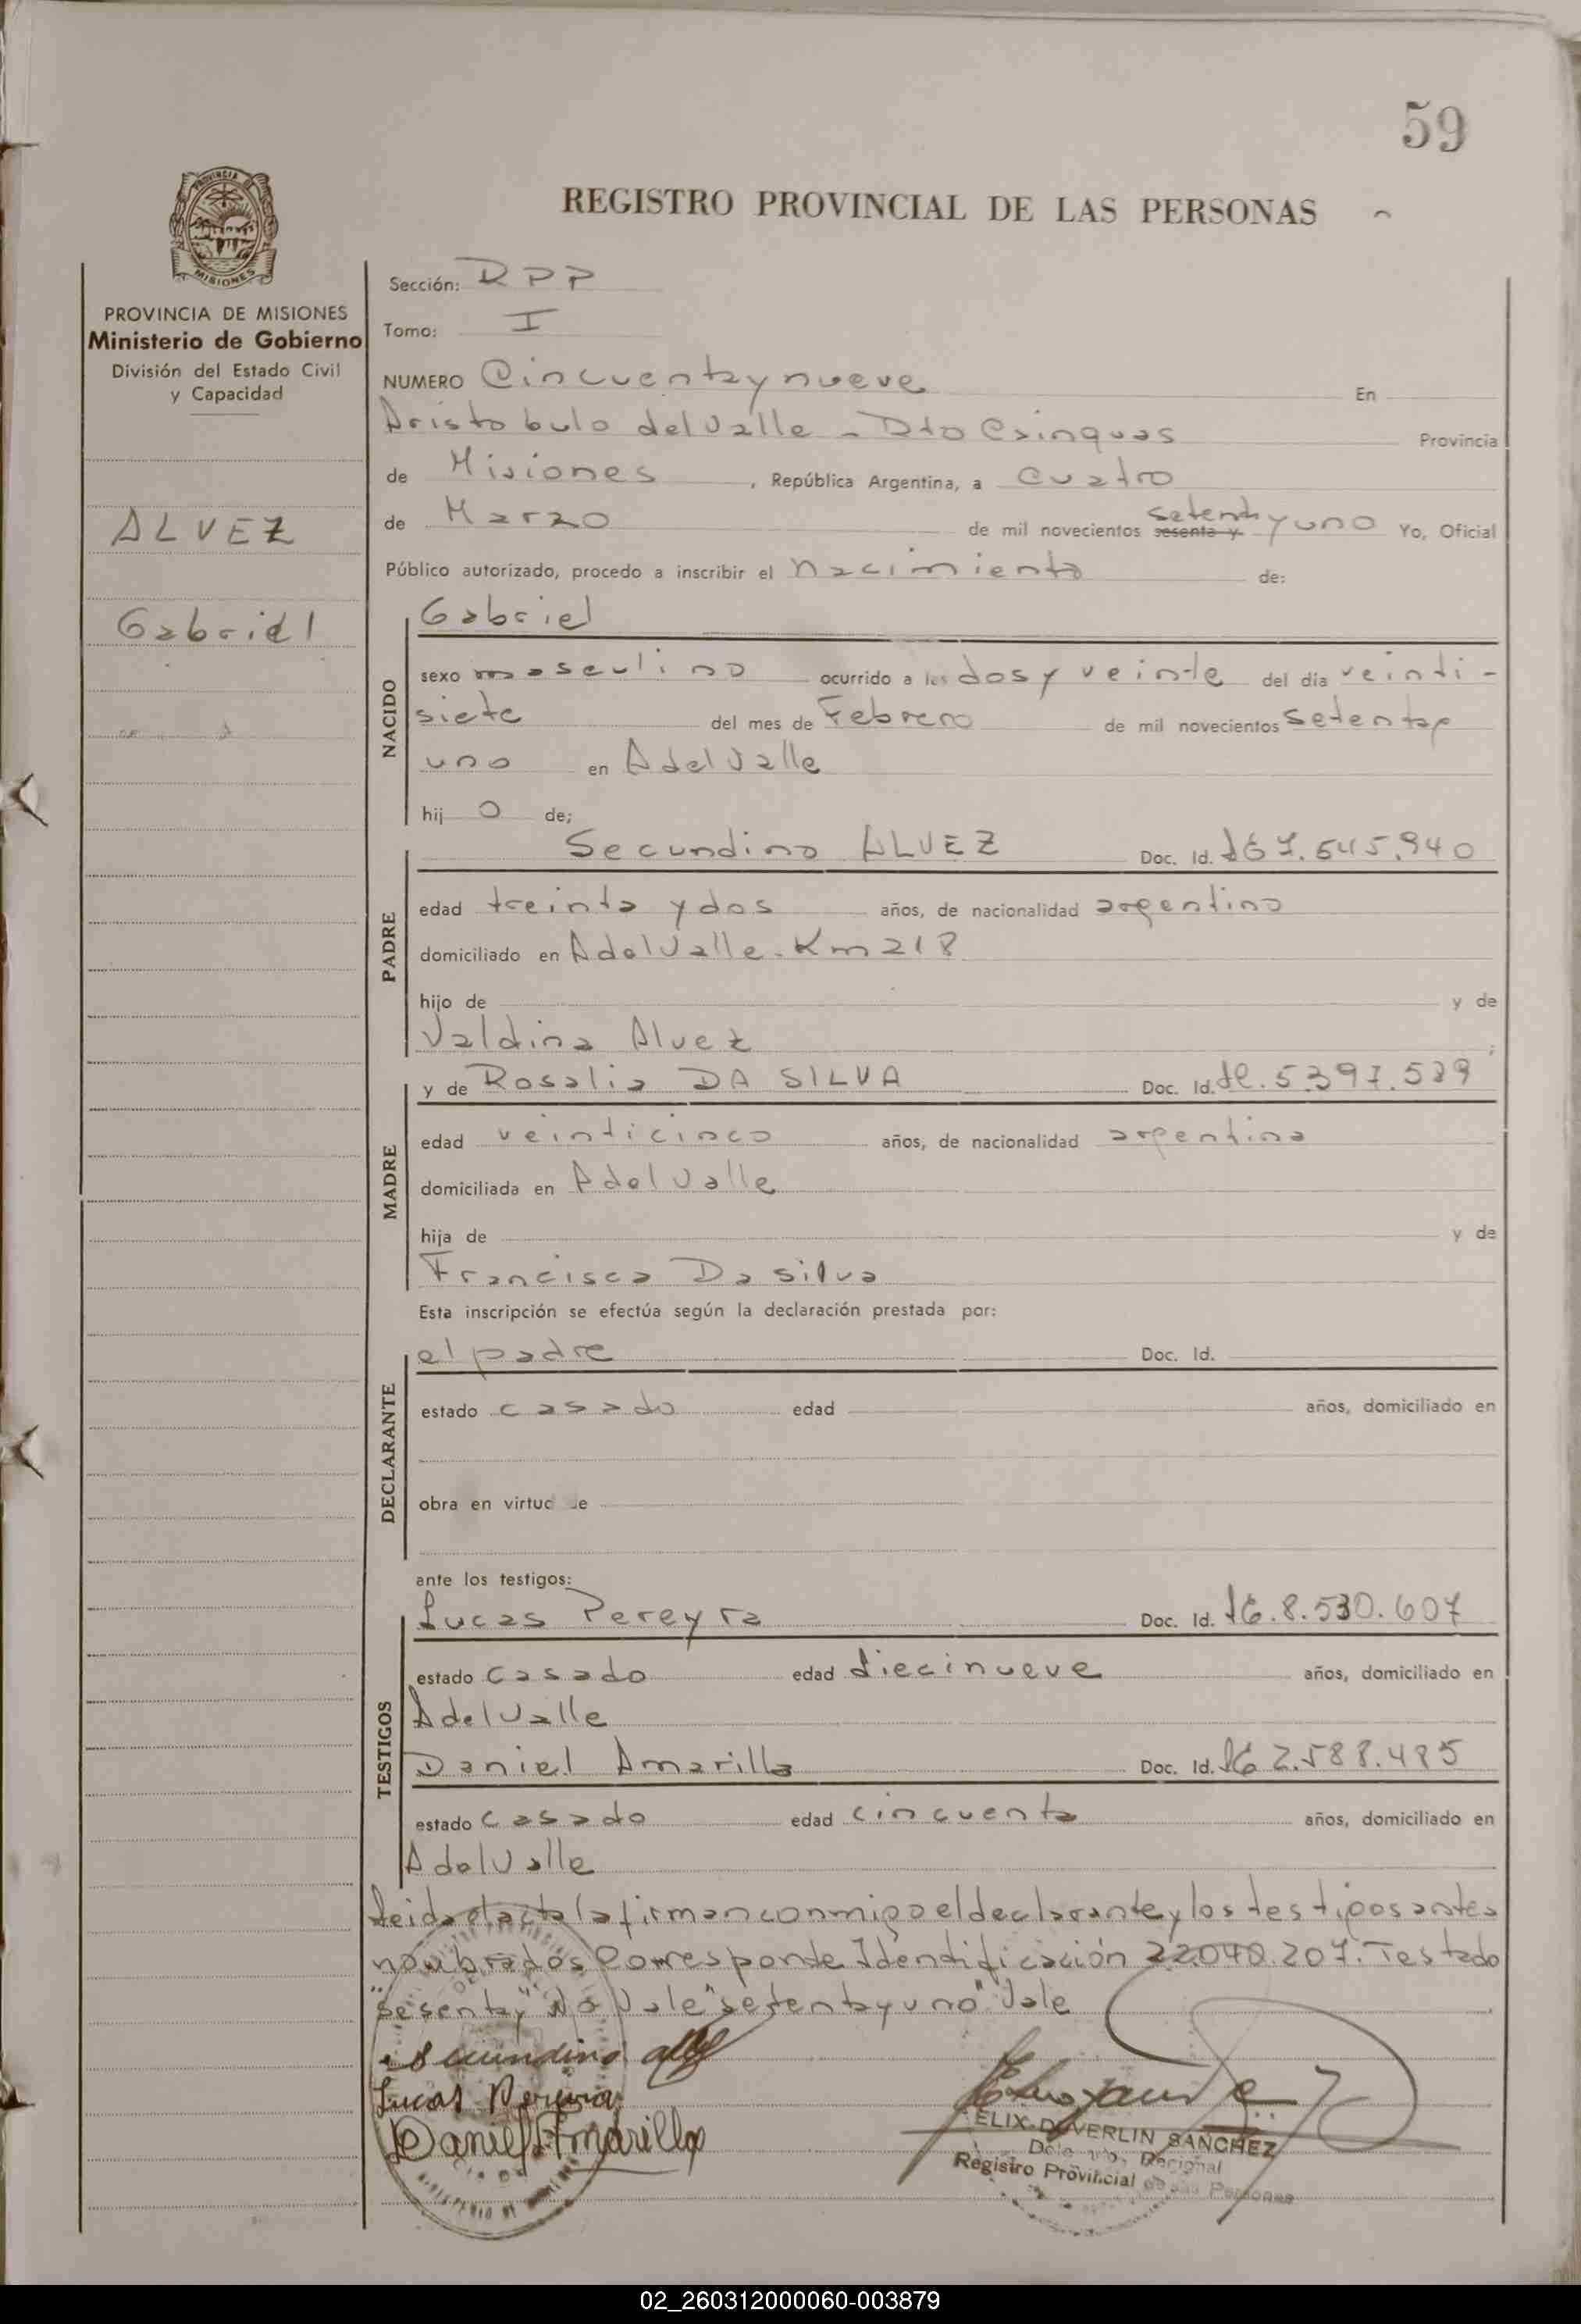 59
REGISTRO PROVINCIAL DE LAS PERSONAS
PROVINCIA DE MISIONES
Ministerio de Gobierno
División del Estado Civil
y Capacidad
ALVEZ
Gabriel
Sección: RPP
Tomo: I
NUMERO Cincuenta y nueve En
Aristobulo del Valle - Dto Cainguas Provincia
de Misiones, República Argentina, a cuatro
de Marzo de mil novecientos sesenta y setenta y uno Yo, Oficial
Público autorizado, procedo a inscribir el nacimiento de:
NACIDO
Gabriel
sexo masculino ocurrido a las dos y veinte del día veinti-
siete del mes de Febrero de mil novecientos setenta y
uno en A del Valle
hijo de;
PADRE
Secundino ALVEZ Doc. Id. 7.545.940
edad treinta y dos años, de nacionalidad argentino
domiciliado en A del Valle. Km 218
hijo de y de
Valdina Alvez
MADRE
y de Rosalia DA SILVA Doc. Id. 5.397.529
edad veinticinco años, de nacionalidad argentina
domiciliada en A del Valle
hija de y de
Francisca Da silva
Esta inscripción se efectúa según la declaración prestada por:
DECLARANTE
el padre Doc. Id.
estado casado edad años, domiciliado en
obra en virtud de
ante los testigos:
TESTIGOS
Lucas Pereyra Doc. Id. 8.530.607
estado casado edad diecinueve años, domiciliado en
A del Valle
Daniel Amarilla Doc. Id. 2.588.485
estado casado edad cincuenta años, domiciliado en
A del Valle
Leida el acta la firman conmigo el declarante y los testigos antes
nombrados Corresponde Identificación 22.040.207. Testado
"sesenta y" No Vale "setenta y uno" Vale
Secundino
Lucas Pereira
Daniel Amarilla
SANCHEZ
Registro Provincial de las Personas
02_260312000060-003879